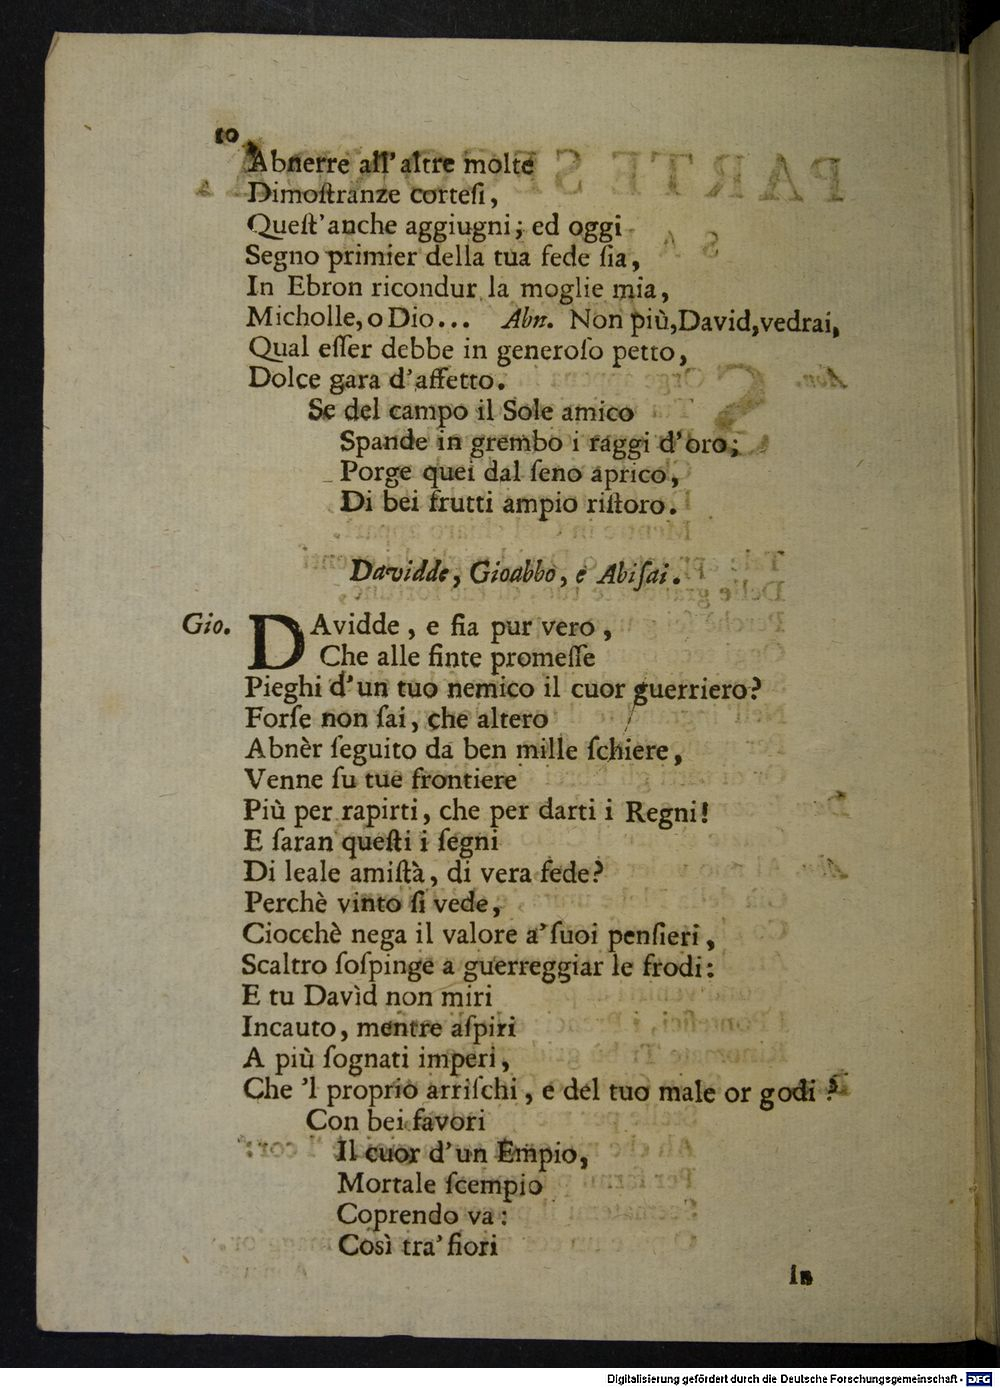 10
Abnerre all' altre molte
Dimoſtranze corteſi,
Queſt' anche aggiugni; ed oggi
Segno primier della tua fede ſia,
In Ebron ricondur la moglie mia,
Micholle, o Dio... Abn. Non più, David, vedrai,
Qual eſſer debbe in generoſo petto,
Dolce gara d'affetto.
Se del campo il Sole amico
Spande in grembo i raggi d'oro;
Porge quei dal ſeno aprico,
Di bei frutti ampio riſtoro.
Davidde, Gioabbo, e Abiſai.
Gio. DAvidde, e ſia pur vero,
Che alle finte promeſſe
Pieghi d'un tuo nemico il cuor guerriero?
Forſe non ſai, che altero
Abnèr ſeguito da ben mille ſchiere,
Venne ſu tue frontiere
Più per rapirti, che per darti i Regni!
E ſaran queſti i ſegni
Di leale amiſtà, di vera fede?
Perchè vinto ſi vede,
Ciocchè nega il valore a' ſuoi penſieri,
Scaltro ſoſpinge a guerreggiar le frodi:
E tu Davìd non miri
Incauto, mentre aſpiri
A più ſognati imperi,
Che 'l proprio arriſchi, e del tuo male or godi?
Con bei favori
Il cuor d'un Empio,
Mortale ſcempio
Coprendo va:
Così tra' fiori
in
Digitalisierung gefördert durch die Deutsche Forschungsgemeinschaft - DFG